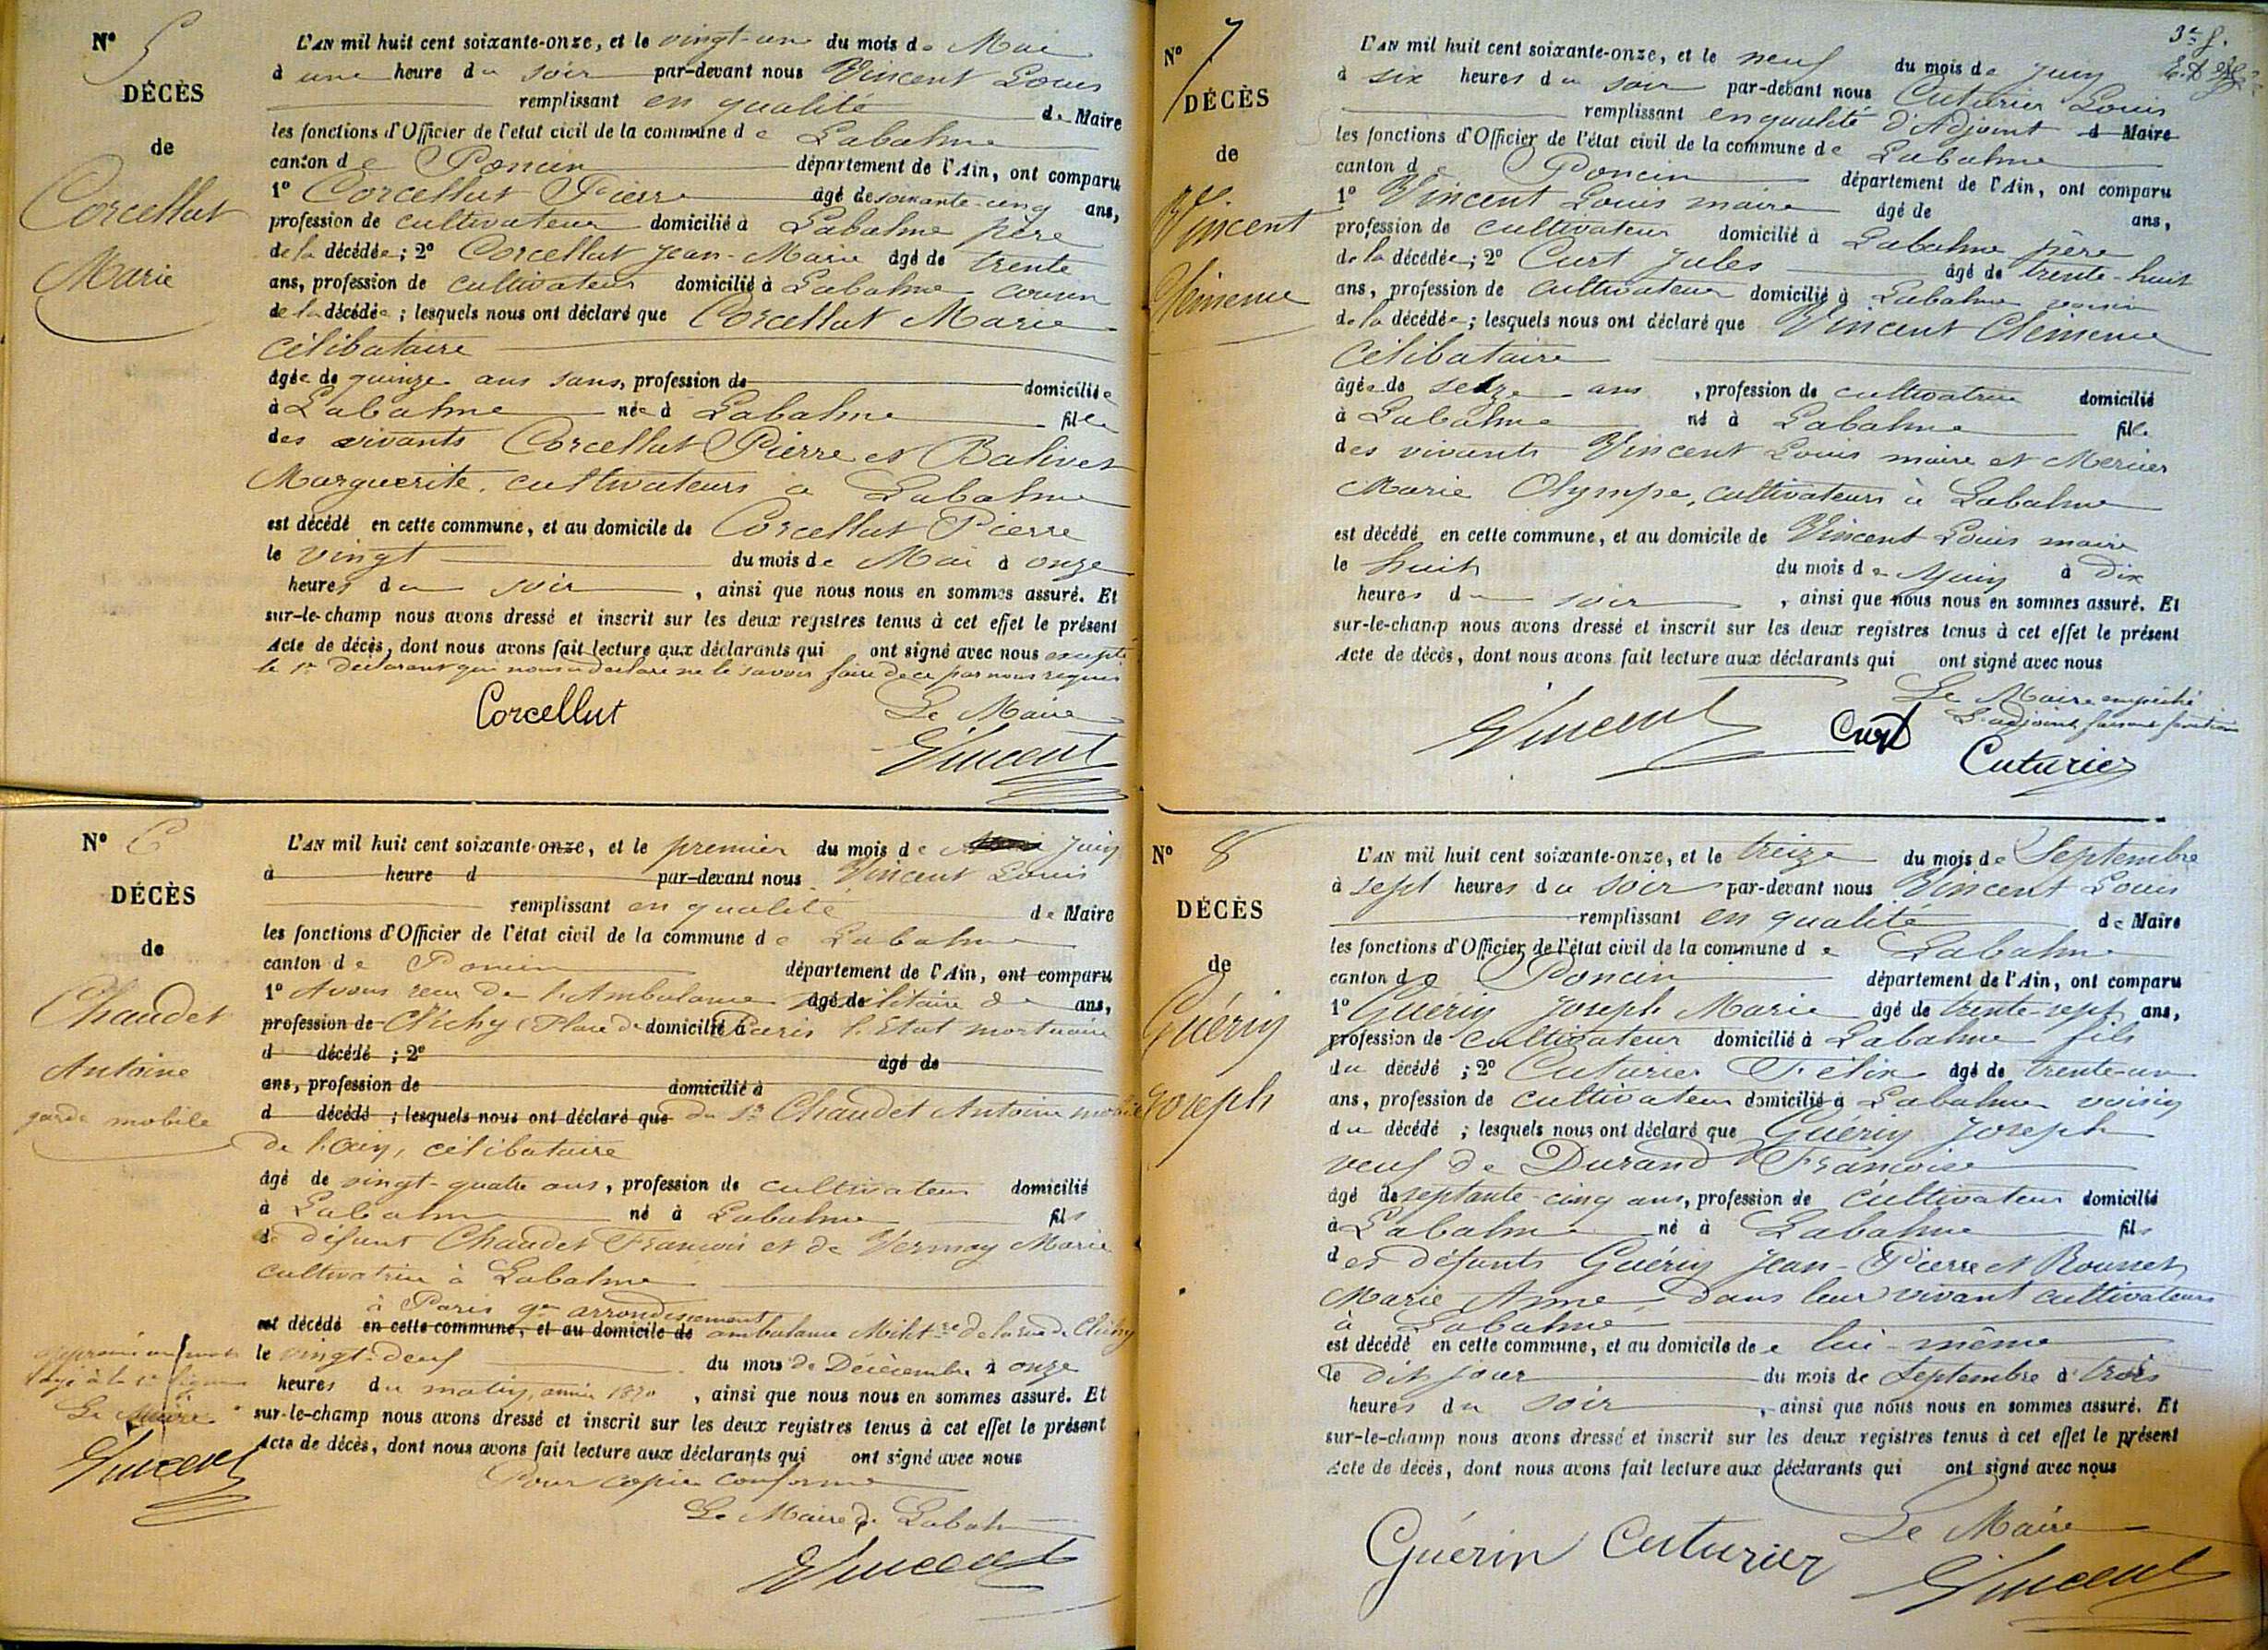 N° 5
DÉCÈS
de
Corcellut
Marie
L'AN mil huit cent soixante-onze, et le vingt-un du mois de Mai
à une heure du soir par-devant nous Vincent Louis
remplissant en qualité de Maire
les fonctions d'Officier de l'état civil de la commune de Labalme
canton de Poncin département de l'Ain, ont comparu
1° Corcellut Pierre âgé de soixante-cinq ans,
profession de cultivateur domicilié à Labalme père
de la décédée ; 2° Corcellut Jean-Marie âgé de trente
ans, profession de cultivateur domicilié à Labalme cousin
de la décédée ; lesquels nous ont déclaré que Corcellut Marie
célibataire
âgée de quinze ans sans, profession de domiciliée
à Labalme née à Labalme fille
des vivants Corcellut Pierre et Balivet
Marguerite, cultivateurs à Labalme
est décédé en cette commune, et au domicile de Corcellut Pierre
le vingt du mois de Mai à onze
heures du soir , ainsi que nous nous en sommes assuré. Et
sur-le-champ nous avons dressé et inscrit sur les deux registres tenus à cet effet le présent
Acte de décès, dont nous avons fait lecture aux déclarants qui ont signé avec nous excepté
le 1er déclarant qui nous a déclaré ne le savoir faire de ce par nous requis
Corcellut Le Maire
Vincent
N° 6
DÉCÈS
de
Chaudet
Antoine
garde mobile
L'AN mil huit cent soixante-onze, et le premier du mois de Juin
à heure d par-devant nous Vincent Louis
remplissant en qualité de Maire
les fonctions d'Officier de l'état civil de la commune de Labalme
canton de Poncin département de l'Ain, ont comparu
1° Avons reçu de l'Ambulance âgé de militaire de ans,
profession de Clichy (Place de domicilié à Paris l'Etat mortuaire
d décédé ; 2° âgé de
ans, profession de domicilié à
d décédé ; lesquels nous ont déclaré que du Sr Chaudet Antoine mobile
de l'Ain, célibataire
âgé de vingt-quatre ans, profession de cultivateur domicilié
à Labalme né à Labalme fils
de défunt Chaudet François et de Vernay Marie
cultivatrice à Labalme
à Paris 9e arrondissement
est décédé en cette commune, et au domicile de ambulance Milit.re de la rue de Clichy
le vingt-neuf du mois de Décembre à onze
heures du matin, année 1870 , ainsi que nous nous en sommes assuré. Et
sur-le-champ nous avons dressé et inscrit sur les deux registres tenus à cet effet le présent
Acte de décès, dont nous avons fait lecture aux déclarants qui ont signé avec nous
Pour copie conforme
Le Maire de Labalme
Vincent
Le Maire
Vincent
N° 7
DÉCÈS
de
Vincent
Clémence
L'AN mil huit cent soixante-onze, et le neuf du mois de Juin
à six heures du soir par-devant nous Cuturier Louis
remplissant en qualité d'Adjoint d Maire
les fonctions d'Officier de l'état civil de la commune de Labalme
canton de Poncin département de l'Ain, ont comparu
1° Vincent Louis maire âgé de ans,
profession de cultivateur domicilié à Labalme père
de la décédée ; 2° Curt Jules âgé de trente-huit
ans, profession de cultivateur domicilié à Labalme voisin
de la décédée ; lesquels nous ont déclaré que Vincent Clémence
Célibataire
âgée de seize ans , profession de cultivatrice domicilié
à Labalme né à Labalme fille
des vivants Vincent Louis maire et Mercier
Marie Olympe, cultivateurs à Labalme
est décédé en cette commune, et au domicile de Vincent Louis maire
le huit du mois de Juin à dix
heures du soir , ainsi que nous nous en sommes assuré. Et
sur-le-champ nous avons dressé et inscrit sur les deux registres tenus à cet effet le présent
Acte de décès, dont nous avons fait lecture aux déclarants qui ont signé avec nous
Le Maire empêché
L'adjoint faisant fonction
Vincent Curt Cuturier
N° 8
DÉCÈS
de
Guérin
Joseph
L'AN mil huit cent soixante-onze, et le treize du mois de Septembre
à sept heures du soir par-devant nous Vincent Louis
remplissant en qualité de Maire
les fonctions d'Officier de l'état civil de la commune de Labalme
canton de Poncin département de l'Ain, ont comparu
1° Guérin Joseph Marie âgé de trente-sept ans,
profession de Cultivateur domicilié à Labalme fils
du décédé ; 2° Cuturier Félix âgé de trente-un
ans, profession de cultivateur domicilié à Labalme voisin
du décédé ; lesquels nous ont déclaré que Guérin Joseph
veuf de Durand Françoise
âgé de septante-cinq ans, profession de cultivateur domicilié
à Labalme né à Labalme fils
des défunts Guérin Jean-Pierre et Rousset
Marie Anne, dans leur vivant cultivateurs
à Labalme
est décédé en cette commune, et au domicile de lui-même
le dit jour du mois de Septembre à trois
heures du soir , ainsi que nous nous en sommes assuré. Et
sur-le-champ nous avons dressé et inscrit sur les deux registres tenus à cet effet le présent
Acte de décès, dont nous avons fait lecture aux déclarants qui ont signé avec nous
Le Maire
Guérin Cuturier Vincent